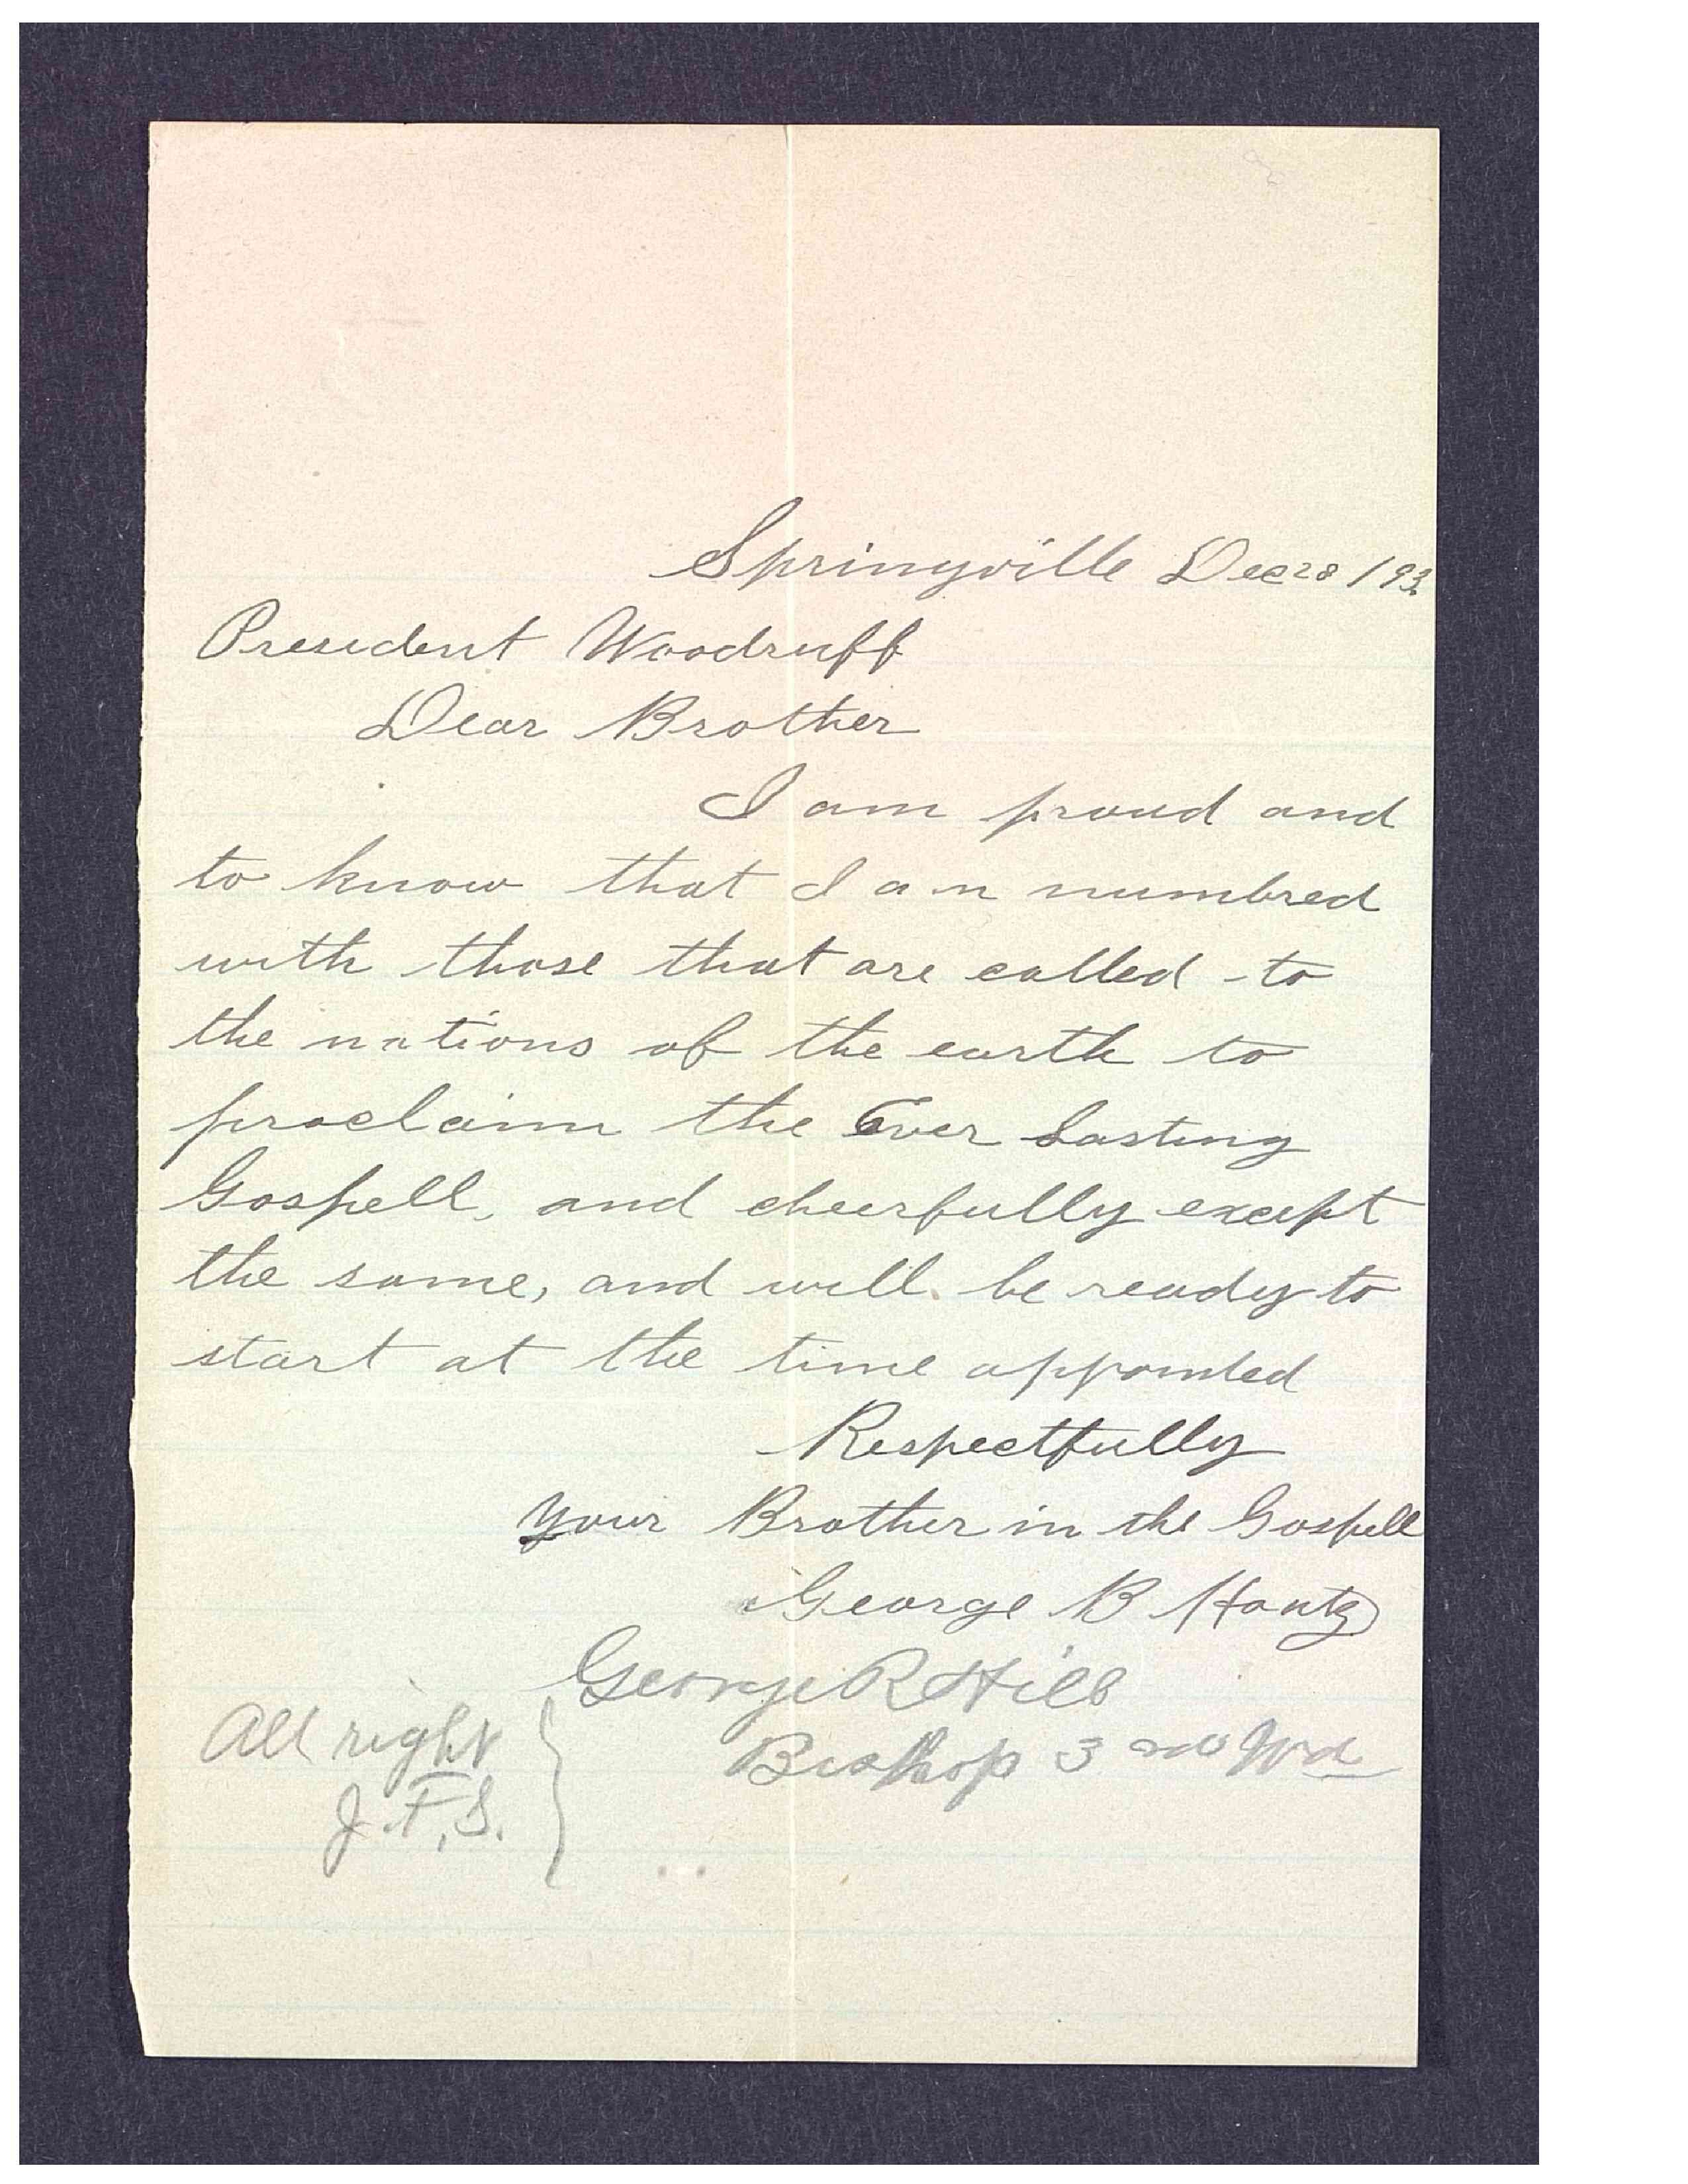 Springville Dec 28 / 93
President Woodruff
Dear Brother
I am proud and
to know that I am numbred
with those that are called to
the nations of the earth to
proclaim the Ever Lasting
Gospell, and cheerfully except
the same, and will be ready to
start at the time appointed
Respectfully
Your Brother in the Gospell
George B Hantz
George R Hill
Bishop 3rd Wd
All right
J. F. S.